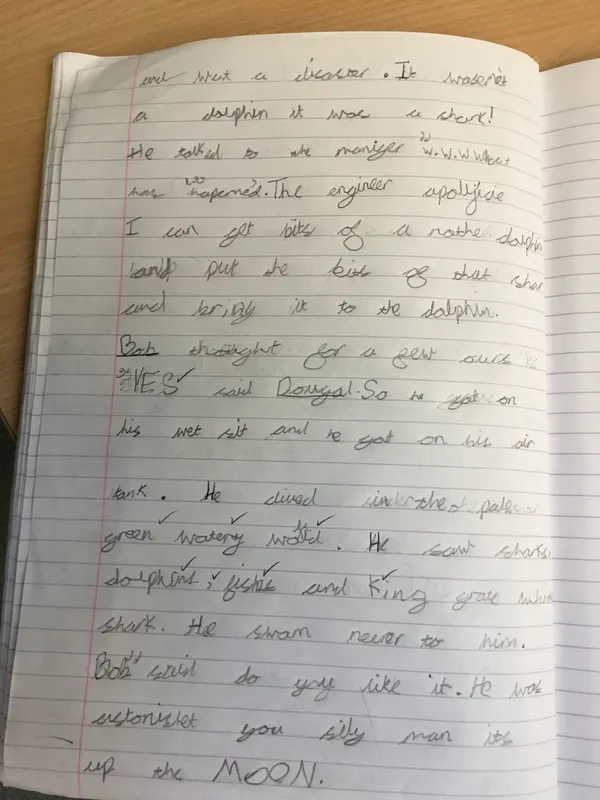 and wat a disaster. It wasen't
a dolphin it was a shark!
He talked to the maniger "W.W.W.What
has hapened". The engineer apolijicie
I can get bits of a nothe dolphin
and put the bits of that shar
and bring it to the dolphin.
Bob thought for a few ours
"YES" said Dougal. So he got on
his wet sit and he got on his air
tank. He dived under the pale
green watery world. He saw sharks
dolphins, fishis and King grate whit
shark. He swam nerer to him.
Bob" said do yoy like it. He was
astonishet you silly man its
up the MOON.